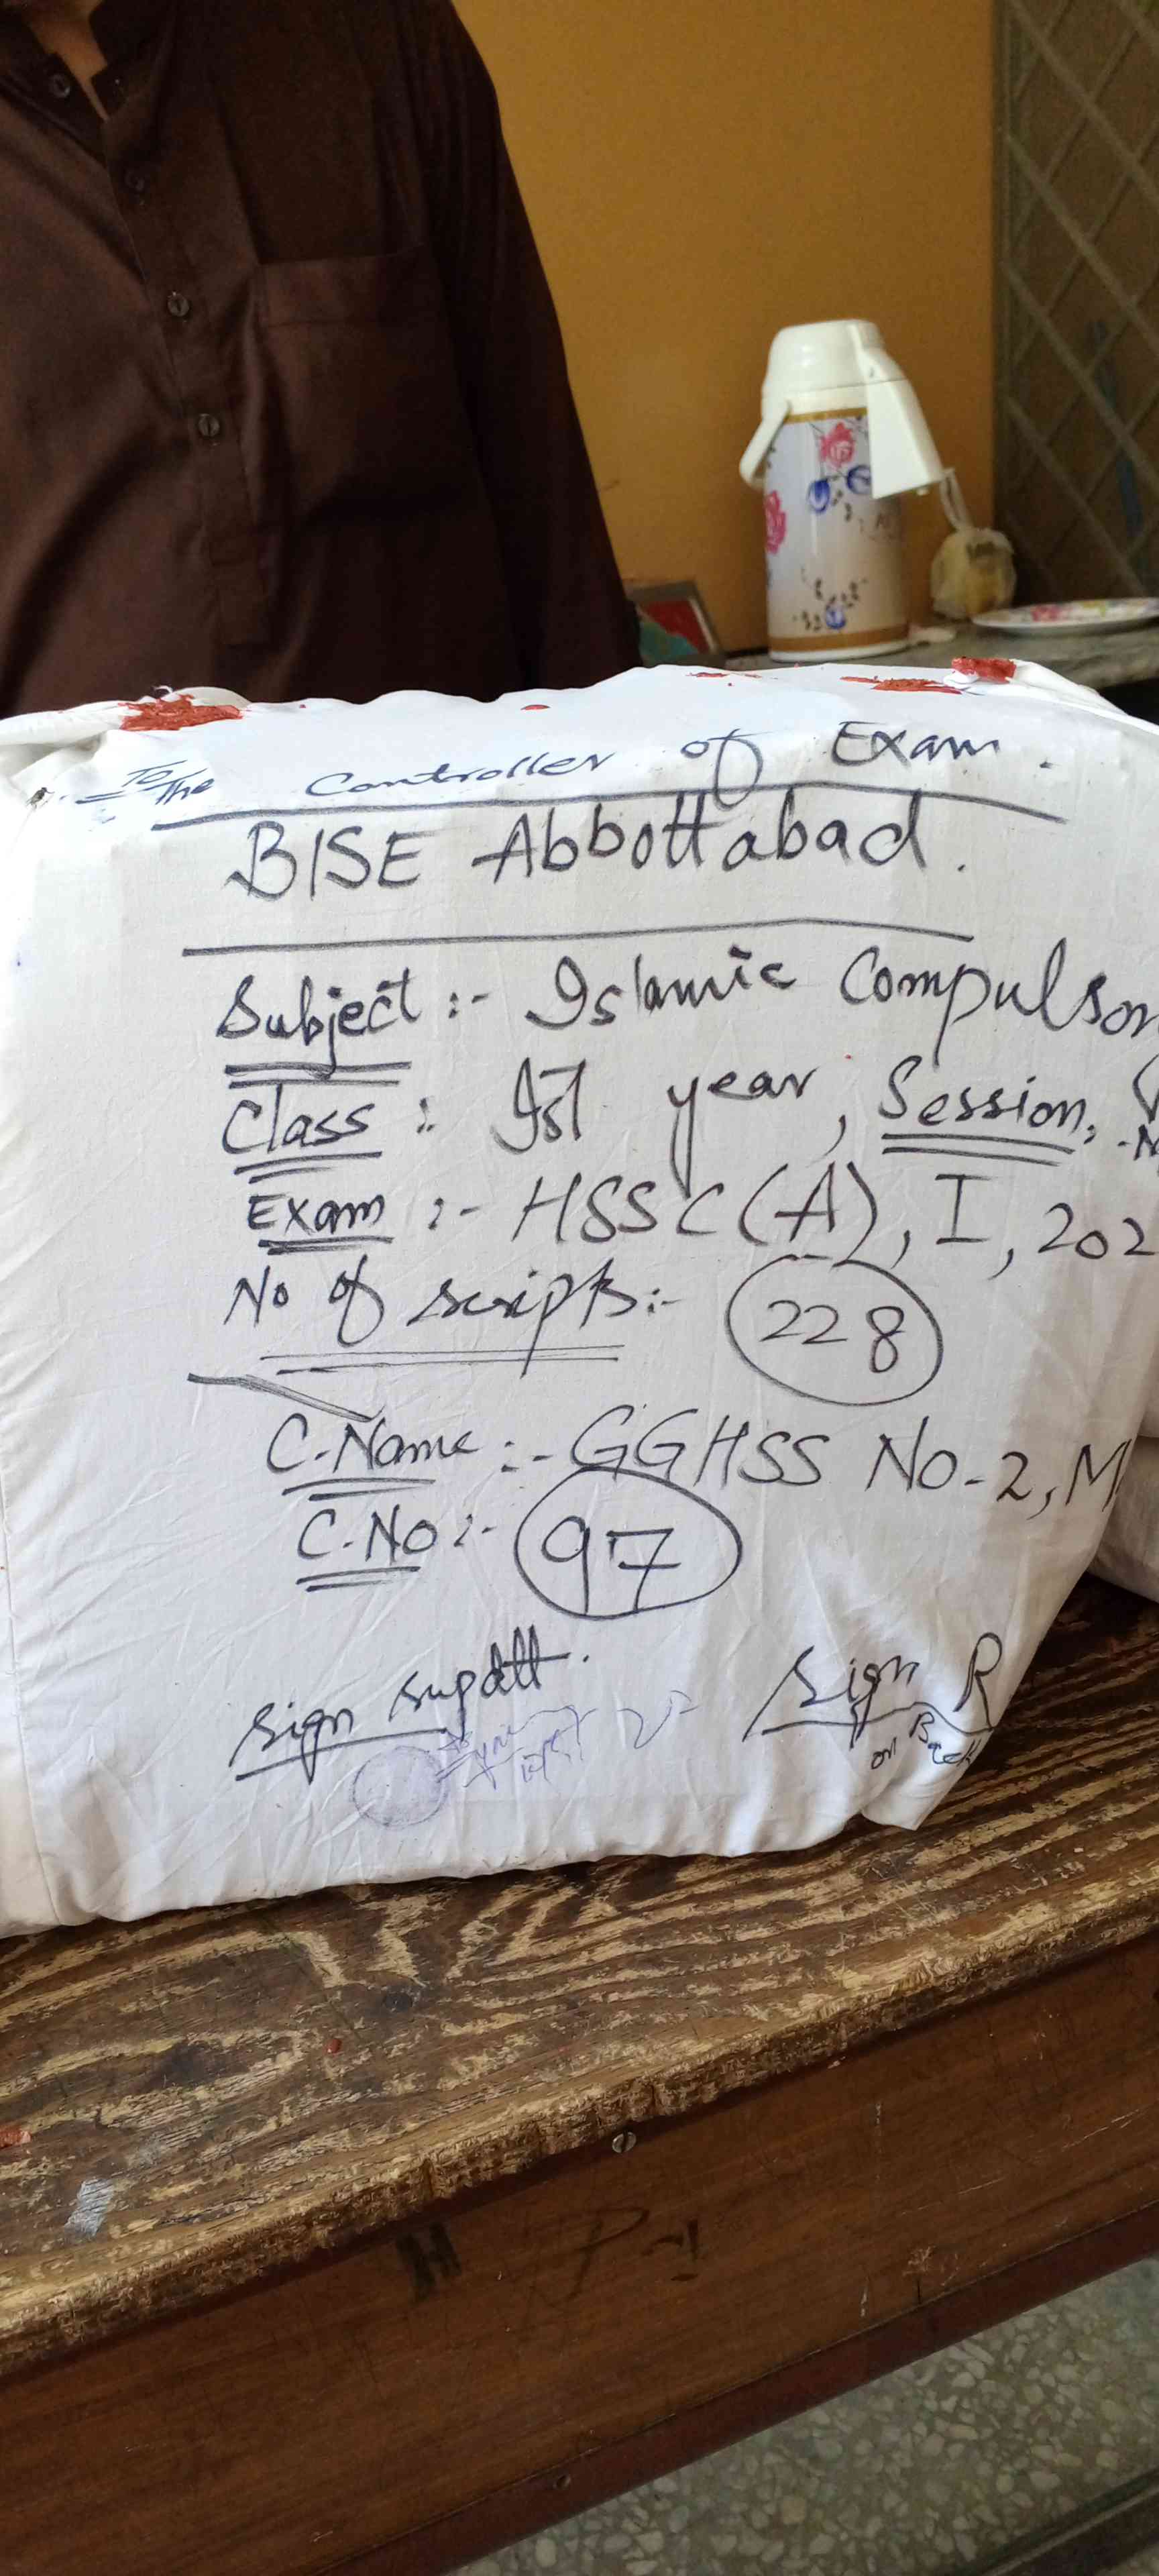 To
The Controller of Exam.
BISE Abbottabad.
Subject :- Islamic Compulsor
Class :- Ist year, Session,
Exam :- HSSC (A), I, 202
No of scripts:- 228
C.Name :- GGHSS No-2, M
C.No :- 97
Sign supdtt. Sign R
on Back